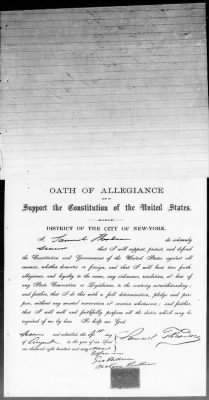 OATH OF ALLEGIANCE
Support the Constitution of the United States.
DISTRICT OF THE CITY OF NEW-YORK.
I, Samuel do solemnly
that I will support, protect, and defend
the Constitution and Government of the United States against all
enemies, whether domestic or foreign, and that I will bear true faith,
allegiance, and loyalty to the same, any ordinance, resolution, or law of
any State Convention or Legislature, to the contrary notwithstanding;
and further, that I do this with a full determination, pledge and pur-
pose, without any mental reservation or evasion whatsoever; and further,
that I will well and faithfully perform all the duties which may be
required of me by law. So help me God.
Sworn and subscribed this day of
August in the year of our Lord
one thousand eight hundred and sixty
before me
Samuel